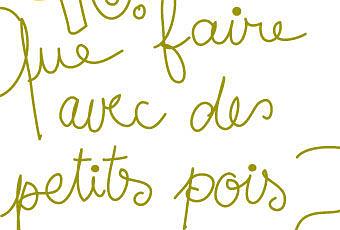 Que faire
avec des
petits pois